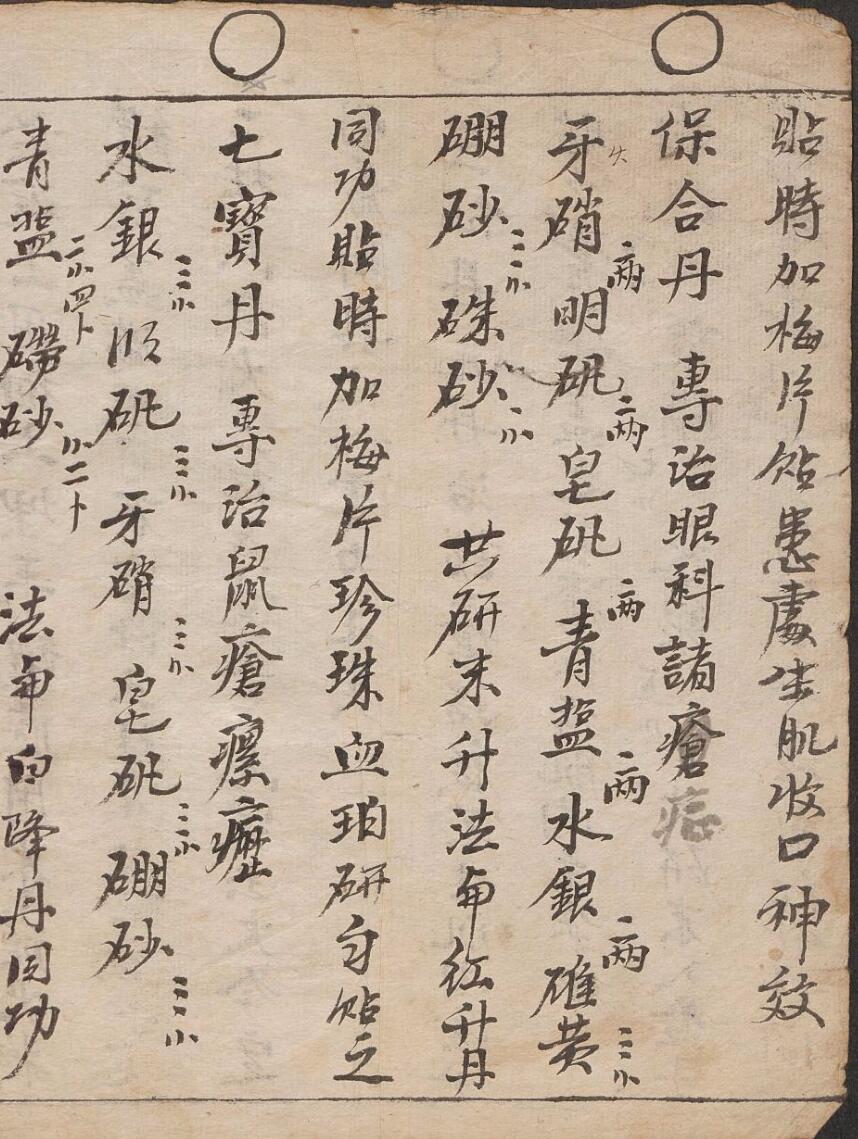 貼時加梅片貼患處生肌收口神效
保合丹 專治眼科諸瘡
牙硝二両明矾二両皂矾二両青盐二両水銀二両雄黄三小
硼砂三小硃砂二小 共研末升法与红升丹
同功貼時加梅片珍珠血珀研匀贴之
七寳丹 專治鼠瘡瘰癧
水銀三小 矾三小牙硝三小皂矾三小硼砂三小
青盐二小四卜 砂小二卜 法与白降丹同功